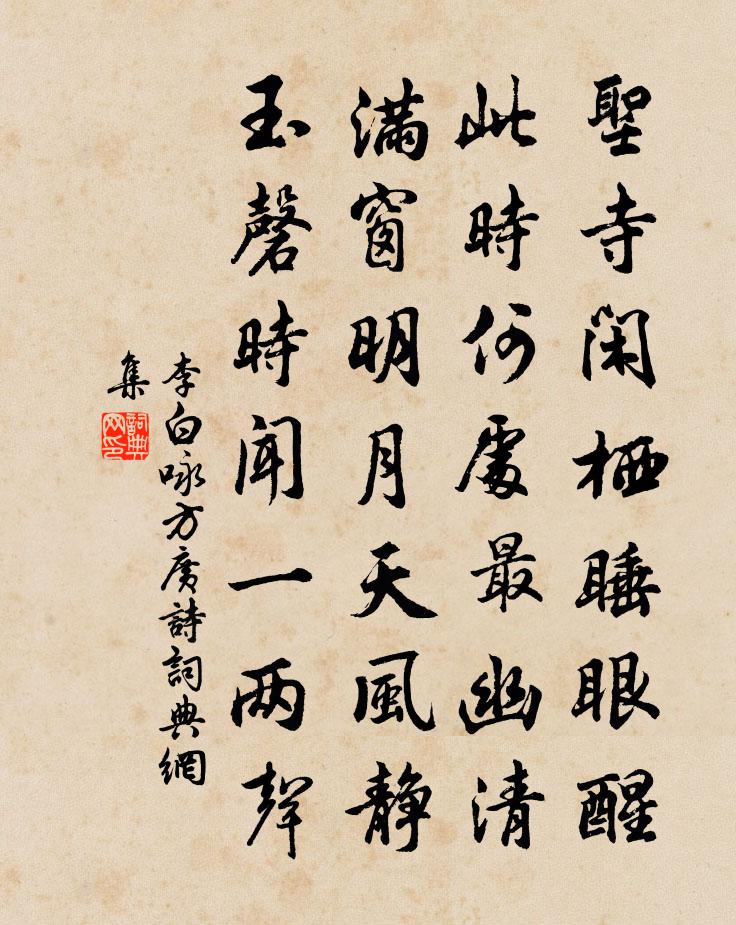 聖寺閑栖睡眼醒
此時何處最幽清
滿窗明月天風靜
玉磬時聞一两聲
李白咏方廣詩詞典網
集
詞典网印